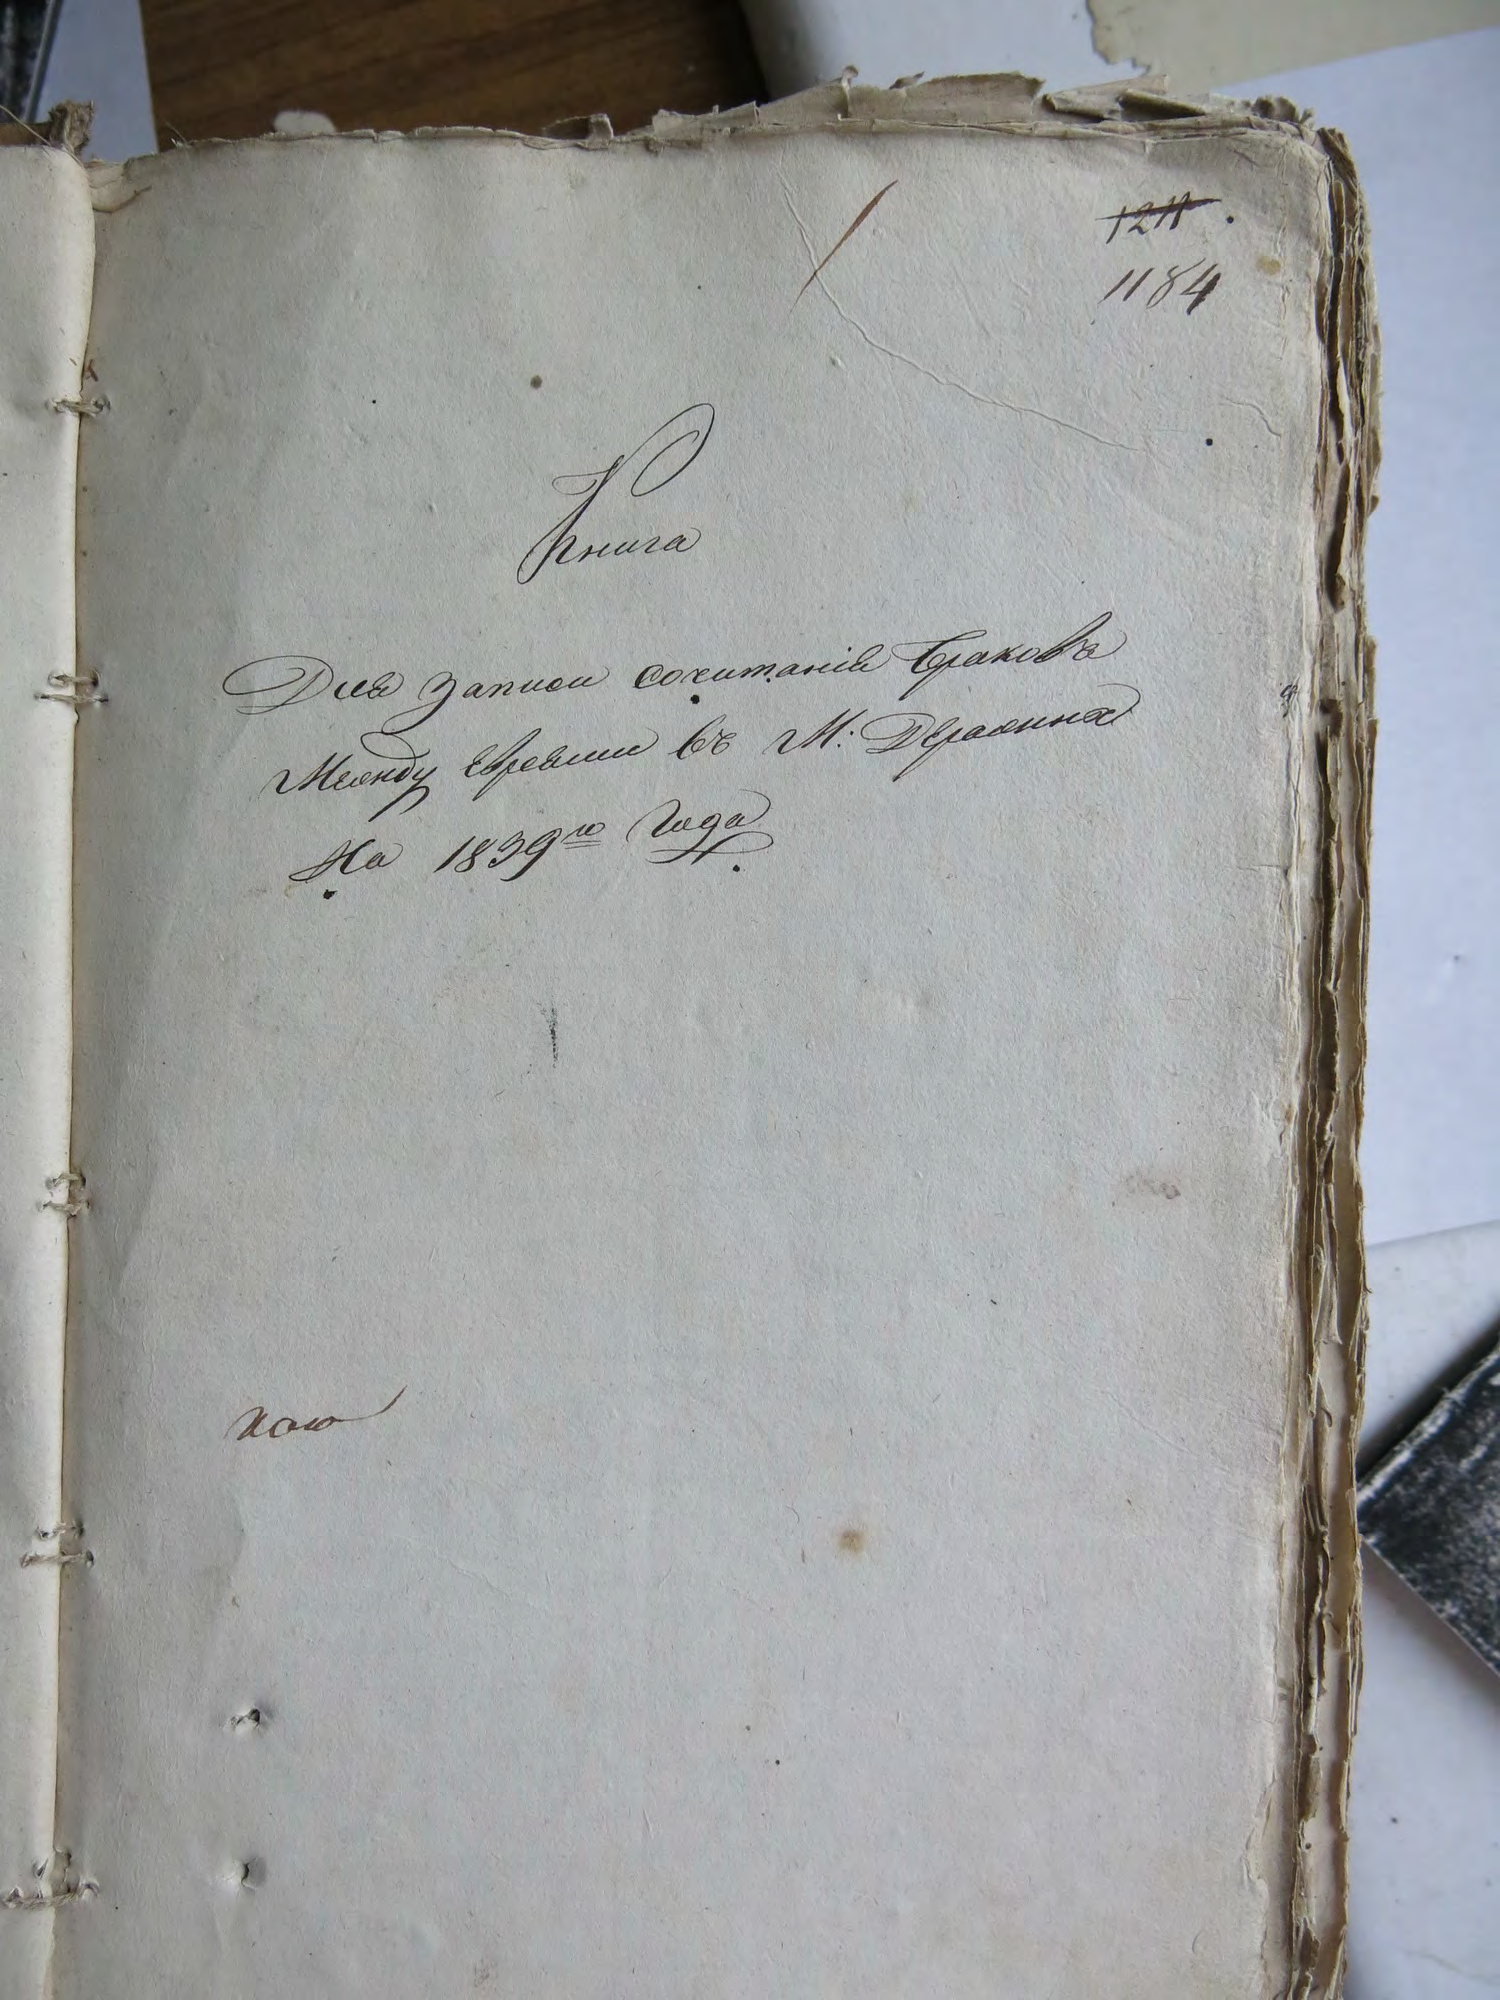 1211.
1184
Книга
Для записи сочитанія браковъ
Между евреями въ М: Деражнѣ
На 1839го Года
кою